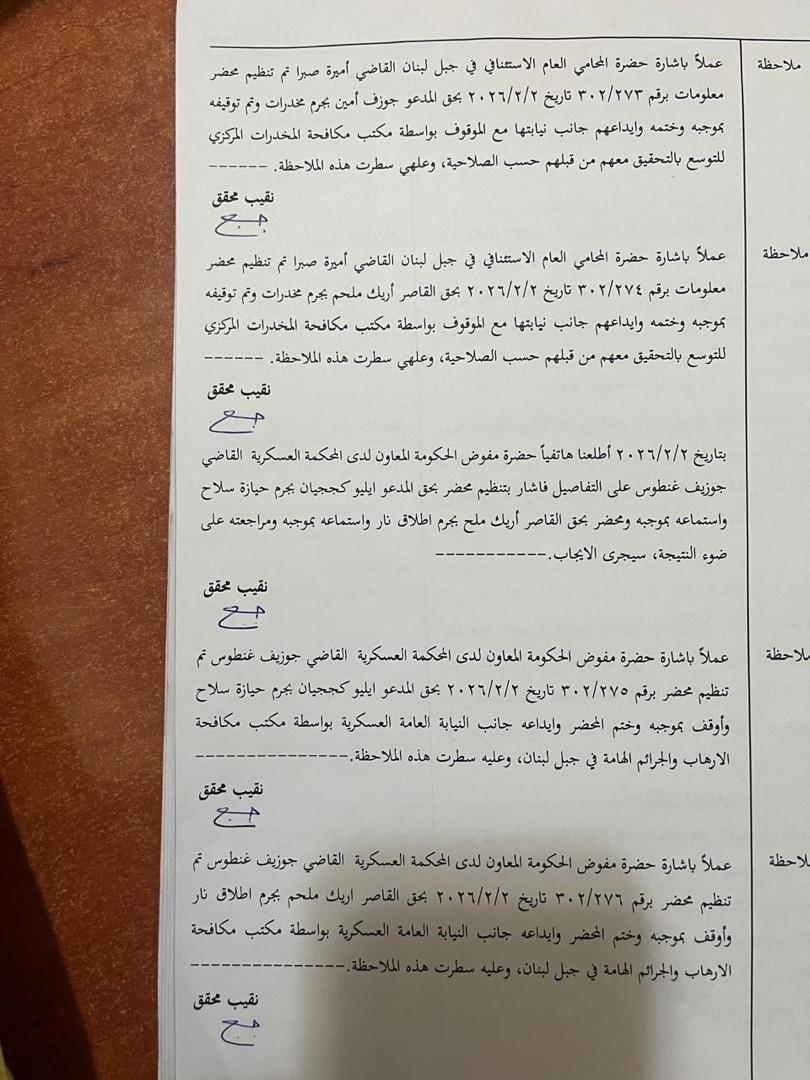 ملاحظة
عملاً باشارة حضرة المحامي العام الاستئنافي في جبل لبنان القاضي أميرة صبرا تم تنظيم محضر
معلومات برقم ٣٠٢/٢٧٣ تاريخ ٢٠٢٦/٢/٢ بحق المدعو جوزف أمين بجرم مخدرات وتم توقيفه
بموجبه وختمه وايداعهم جانب نيابتها مع الموقوف بواسطة مكتب مكافحة المخدرات المركزي
للتوسع بالتحقيق معهم من قبلهم حسب الصلاحية، وعلهي سطرت هذه الملاحظة. ------
نقيب محقق
ملاحظة
عملاً باشارة حضرة المحامي العام الاستئنافي في جبل لبنان القاضي أميرة صبرا تم تنظيم محضر
معلومات برقم ٣٠٢/٢٧٤ تاريخ ٢٠٢٦/٢/٢ بحق القاصر أريك ملحم بجرم مخدرات وتم توقيفه
بموجبه وختمه وايداعهم جانب نيابتها مع الموقوف بواسطة مكتب مكافحة المخدرات المركزي
للتوسع بالتحقيق معهم من قبلهم حسب الصلاحية، وعلهي سطرت هذه الملاحظة. ------
نقيب محقق
بتاريخ ٢٠٢٦/٢/٢ أطلعنا هاتفياً حضرة مفوض الحكومة المعاون لدى المحكمة العسكرية القاضي
جوزيف غنطوس على التفاصيل فاشار بتنظيم محضر بحق المدعو ايليو كججيان بجرم حيازة سلاح
واستماعه بموجبه ومحضر بحق القاصر أريك ملح بجرم اطلاق نار واستماعه بموجبه ومراجعته على
ضوء النتيجة، سيجرى الايجاب.-----------
نقيب محقق
ملاحظة
عملاً باشارة حضرة مفوض الحكومة المعاون لدى المحكمة العسكرية القاضي جوزيف غنطوس تم
تنظيم محضر برقم ٣٠٢/٢٧٥ تاريخ ٢٠٢٦/٢/٢ بحق المدعو ايليو كججيان بجرم حيازة سلاح
وأوقف بموجبه وختم المحضر وايداعه جانب النيابة العامة العسكرية بواسطة مكتب مكافحة
الارهاب والجرائم الهامة في جبل لبنان، وعليه سطرت هذه الملاحظة.---------------
نقيب محقق
ملاحظة
عملاً باشارة حضرة مفوض الحكومة المعاون لدى المحكمة العسكرية القاضي جوزيف غنطوس تم
تنظيم محضر برقم ٣٠٢/٢٧٦ تاريخ ٢٠٢٦/٢/٢ بحق القاصر اريك ملحم بجرم اطلاق نار
وأوقف بموجبه وختم المحضر وايداعه جانب النيابة العامة العسكرية بواسطة مكتب مكافحة
الارهاب والجرائم الهامة في جبل لبنان، وعليه سطرت هذه الملاحظة.---------------
نقيب محقق